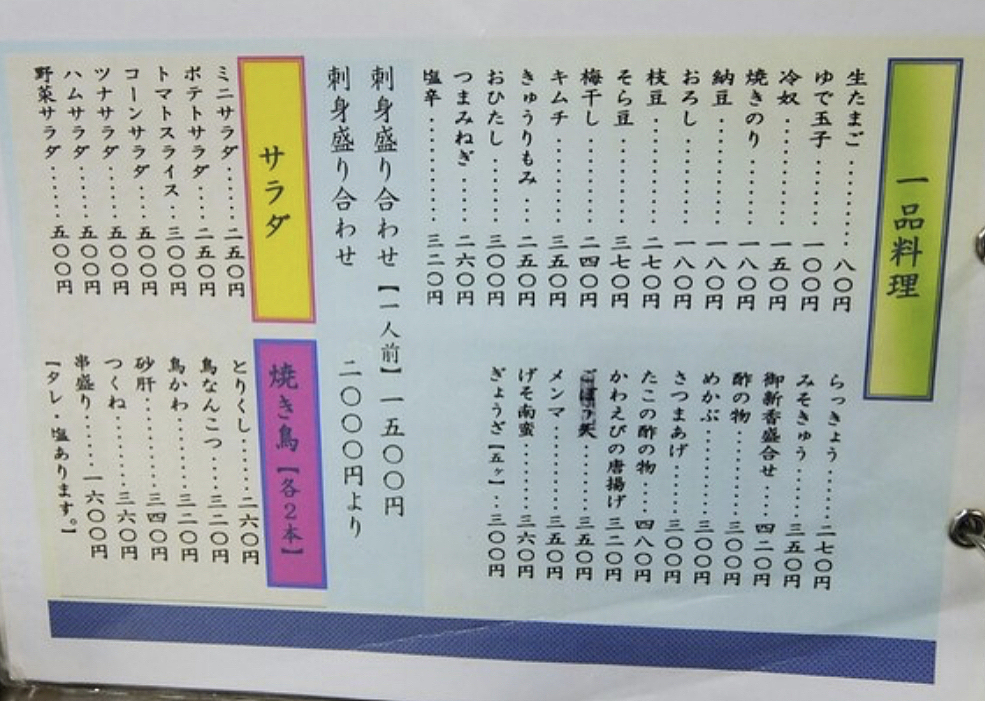 一品料理
生たまご………八〇円
ゆで玉子………一〇〇円
冷奴………一五〇円
焼きのり………一八〇円
納豆………一八〇円
おろし………一八〇円
枝豆………二七〇円
そら豆………三七〇円
梅干し………二四〇円
キムチ………三五〇円
きゅうりもみ……二五〇円
おひたし………三〇〇円
つまみねぎ……二六〇円
塩辛………三二〇円
らっきょう……二七〇円
みそきゅう……三五〇円
御新香盛合せ…四二〇円
酢の物………三〇〇円
めかぶ………三〇〇円
さつまあげ……三〇〇円
たこの酢の物…四八〇円
かわえびの唐揚げ 三二〇円
………三五〇円
メンマ………三五〇円
げそ南蛮………三六〇円
ぎょうざ【五ヶ】…三〇〇円
刺身盛り合わせ【一人前】一五〇〇円
刺身盛り合わせ 二〇〇〇円より
サラダ
ミニサラダ……二五〇円
ポテトサラダ…二五〇円
トマトスライス…三〇〇円
コーンサラダ…五〇〇円
ツナサラダ……五〇〇円
ハムサラダ……五〇〇円
野菜サラダ……五〇〇円
焼き鳥【各2本】
とりくし……二六〇円
鳥なんこつ…三二〇円
鳥かわ………三二〇円
砂肝………三四〇円
つくね………三六〇円
串盛り……一六〇〇円
【タレ・塩あります。】